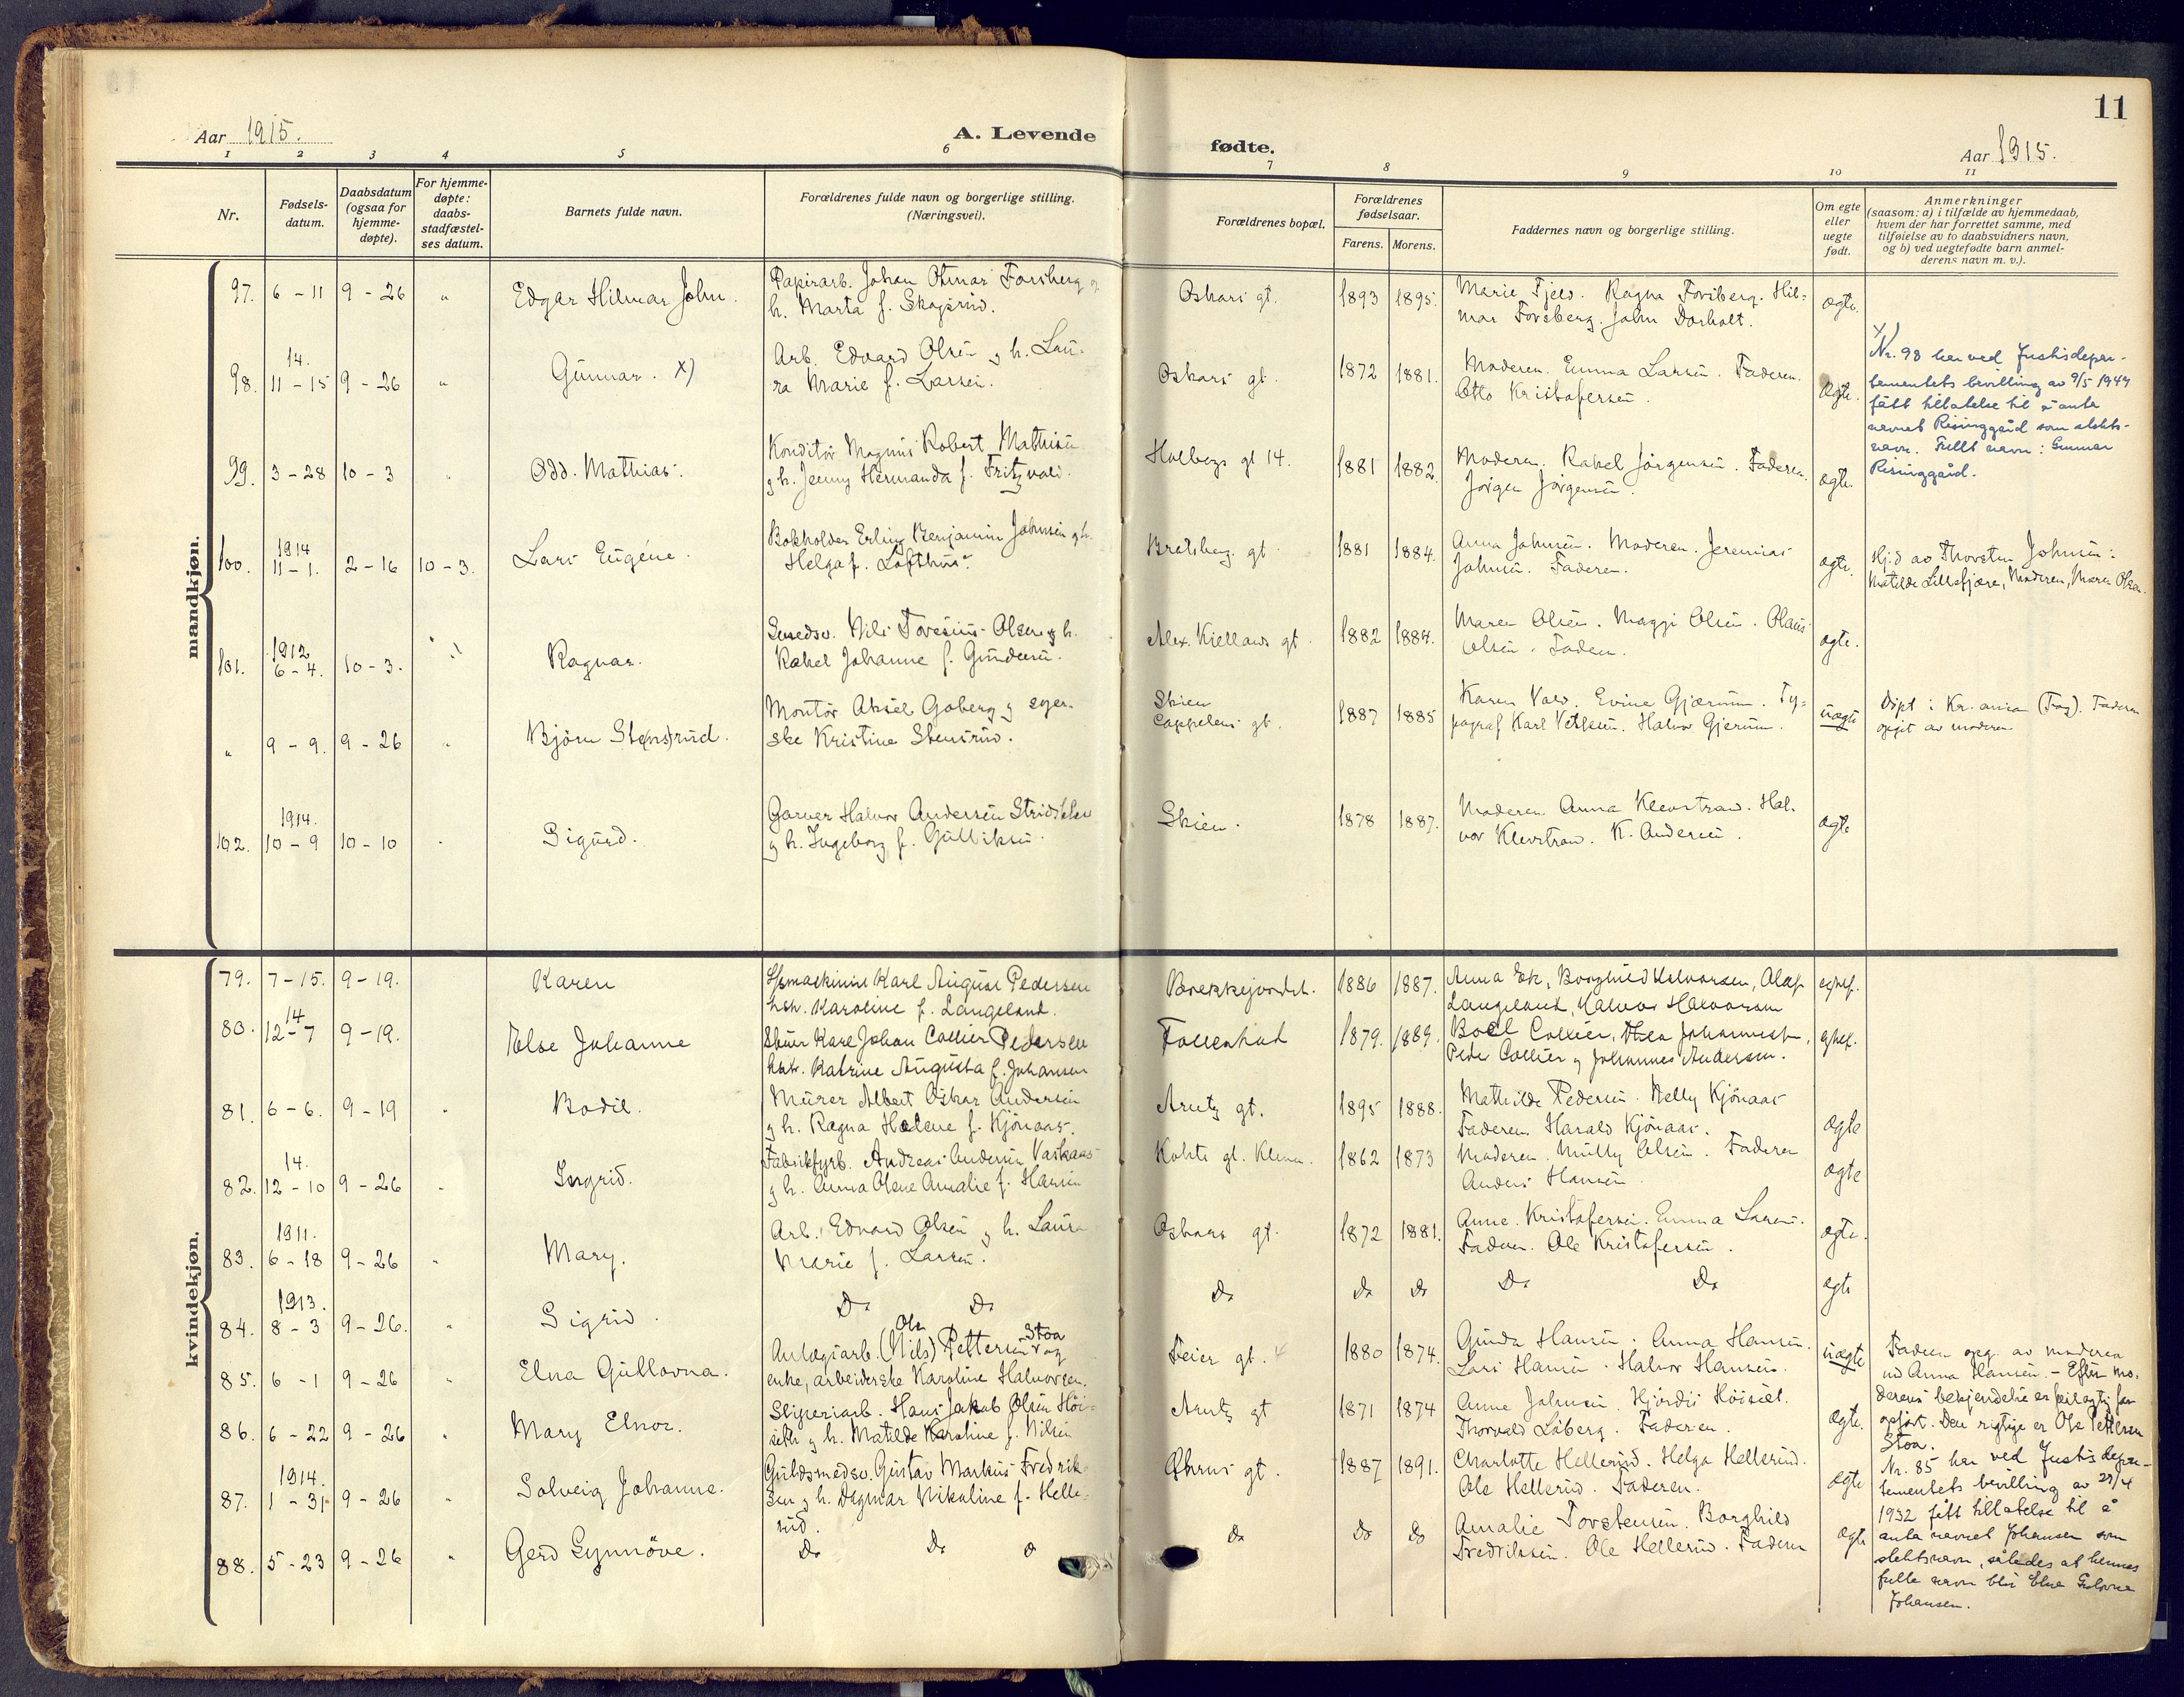 11
Aar 1915.
A. Levende
fødte.
Aar 1915.
1 2 3 4 5 6 7 8 9 10 11
Nr.
Fødsels-
datum.
Daabsdatum
(ogsaa for
hjemme-
døpte).
For hjemme-
døpte:
daabs-
stadfæstel-
ses datum.
Barnets fulde navn.
Forældrenes fulde navn og borgerlige stilling.
(Næringsvei).
Forældrenes bopæl.
Forældrenes
fødselsaar.
Farens. Morens.
Faddernes navn og borgerlige stilling.
Om egte
eller
uegte
født.
Anmerkninger
(saasom: a) i tilfælde av hjemmedaab,
hvem der har forrettet samme, med
tilføielse av to daabsvidners navn,
og b) ved uegtefødte barn anmel-
derens navn m. v.).
mandkjøn.
97. 6 - 11 9 - 26 " Edgar Hilmar John. Papirarb. Johan Otmar Forsberg og Oskars gt. 1893 1895. Marie Fjeld. Ragna Forsberg. Hil- ægte.
h. Marta f. Skapsrud.
mar Forsberg. John Dorholt.
14.
98. 11 - 15 9 - 26 " Gunnar. x) Arb. Edvard Olsen og h. Lau- Oskars gt. 1872 1881. Moderen. Emma Larsen. Faderen. ægte.
ra Marie f. Larsen.
Otto Kristofersen.
x)
Nr. 98 har ved Justisdepar-
tementets bevilling av 9/5 1947
fått tillatelse til å anta
navnet Risinggård som slekts-
navn. Fullt navn: Gunnar
Risinggård.
99. 3 - 28 10 - 3 " Odd. Mathias. Konditor Magnus Robert Mathisen Holbergs gt 14. 1881 1882. Moderen. Rakel Jörgensen. Faderen. ægte.
og h. Jenny Hermanda f. Fritzvold.
Jörgen Jörgensen.
1914
100. 11 - 1. 2 - 16 10 - 3. Lars Eugéne. Bokholder Erling Benjamin Johnsen og h. Bratsberg. gt. 1881 1884. Anna Johnsen. Moderen. Jeremias ægte.
Helga f. Lofthus.
Johnsen. Faderen.
Hj.d av Thorsten Johnsen:
Matilde Lillefjære, Moderen, Maren Olsen.
1912
101. 6 - 4. 10 - 3. " Ragnar. Smedsv. Nils Toresius Olsen og h. Alex. Kiellands gt. 1882 1884. Maren Olsen. Maggi Olsen. Olaus ægte.
Rakel Johanne f. Gundersen.
Olsen. Faderen.
" 9 - 9. 9 - 26 " Björn Ste(ns)rud. Montör Aksel Goberg og syer- Skien 1887 1885 Karen Vald. Evine Gjærum. Ty- uægte
ske Kristine Stensrud.
Cappelens gt.
pograf Karl Vetlesen. Halvor Gjerum.
Döpt i Kr.ania (Frog). Faderen
opgit av moderen
1914.
102. 10 - 9 10 - 10 " Sigurd. Garver Halvor Andersen Stridsklev Skien. 1878 1887. Moderen Anna Klevstrand. Hal- ægte
og h. Ingeborg f. Gulliksen.
vor Klevstrand. K. Andersen.
kvindekjøn.
79. 7-15. 9-19. Karen Karl August Pedersen 1886 1887. Anna Ek, Borghild Halvorsen, Olaf
hstr. Karoline f. Langeland.
Langeland, Halvor Halvorsen
14
80. 12-7 9-19. Else Johanne Karl Johan Collier Pedersen Follestad 1879. 1889. Boel Collier, Thea Johannessen,
hstr. Katrine Augusta f. Johansen
Peder Collier og Johannes Andersen.
81. 6-6. 9-19 " Bodil. Murer Albert Oskar Andersen Arntz gt. 1895 1888. Mathilde Pedersen. Nelly Kjönaas ægte
og h. Ragna Helene f. Kjönaas.
Faderen. Harald Kjönaas.
14.
82. 12 - 10 9 - 26 " Ingrid. Fabrikfyrb. Andreas Andersen Vaskaas Kohts gt. 1862 1873 Moderen. Milly Olsen. Faderen ægte
og h. Anna Olene Amalie f. Hansen
Anders Hansen.
1911.
83. 6 - 18 9 - 26 " Mary. Arb. Edvard Olsen og h. Laura Oskars gt. 1872 1881. Anne Kristofersen. Emma Larsen. ægte.
Marie f. Larsen.
Faderen. Ole Kristofersen.
1913.
84. 8 - 3 9 - 26. " Sigrid. Do Do Do Do Do Do Do ægte
Ole Stoa
85. 6 - 1 9 - 26 " Elna Gullovna. Anlægsarb. (Nils) Pettersen og Feier gt. 1880 1874. Gunda Hansen. Anna Hansen. uægte
enke, arbeiderske Karoline Halvorsen.
Lars Hansen. Halvor Hansen.
Faderen opg. av moderen
ved Anna Hansen. - Efter mo-
derens bekjendelse er feilagtig far
opfört. Den rigtige er Ole Pettersen
Stoa.
86. 6 - 22 9 - 26 " Mary Elnor. Sliperiarb. Hans Jakob Olsen Höi- Arntz gt 1871 1874 Anne Johnsen. Hjördis Höiset. ægte.
seth og h. Matilde Karoline f. Nilsen
Thorvald Löberg. Faderen.
1914.
87. 1 - 31 9 - 26 " Solveig Johanne. Guldsmedsv. Gustav Markus Fredrik- gt. 1887 1891. Charlotte Hellerud. Helga Hellerud. ægte
sen og h. Dagmar Nikoline f. Helle-
rud.
Ole Hellerud. Faderen.
Nr. 85 har ved Justisdepar-
tementets bevilling av 29/4
1932 fått tillatelse til å
anta navnet Johansen som
slektsnavn, således at hennes
fulle navn blir Elna Gulovna
Johansen.
88. 5 - 23 9 - 26 " Gerd Synnöve. Do Do Do Do Do Amalie Torstensen. Borghild ægte
Fredriksen. Ole Hellerud. Faderen